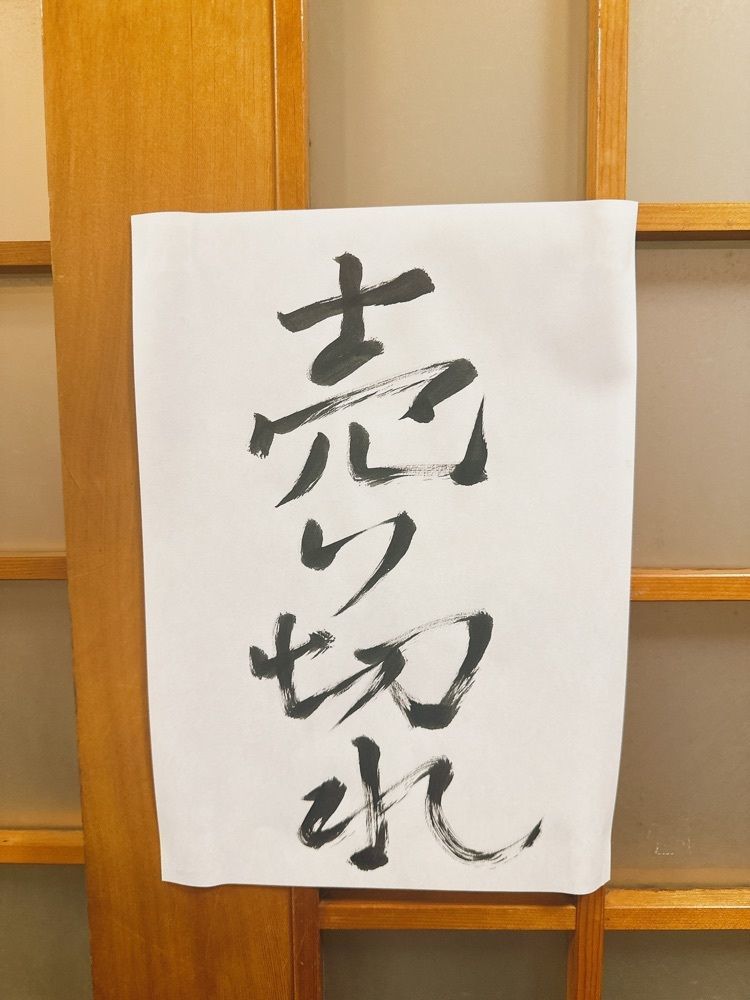 売り切れ